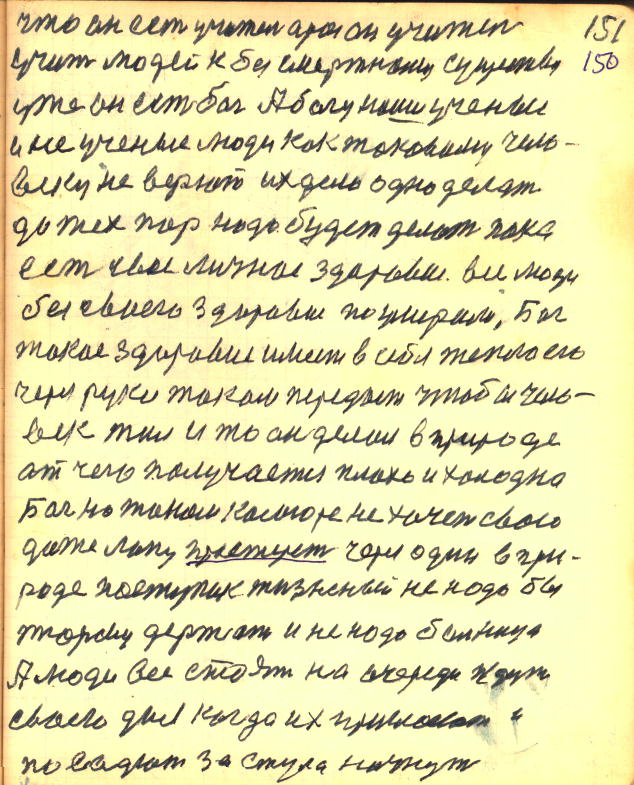 что он ест учител а раз он учител 151
учит людей к безсмертному существу 150
уже он ест бог А богу наши ученые
и не ученые люди как таковому чело-
веку не верют их дело одно делат
до тех пор надо будет делат пока
ест свое личное здоровие. все люди
без своего здоровие поумерали, Бог
такое здоровие имеет в себя тепло его
через руки таком передает чтобы чело-
век жил и то он делал в природе
от чего получается плохо и холодна
Бог на таком не хочет свою
даже лапу простерет через один в при-
роде поступак жизненый не надо бы
тюрму держат и не надо болница
А люди все стоят на очереди ждут
своего дня когда их и
посадют за стула начнут